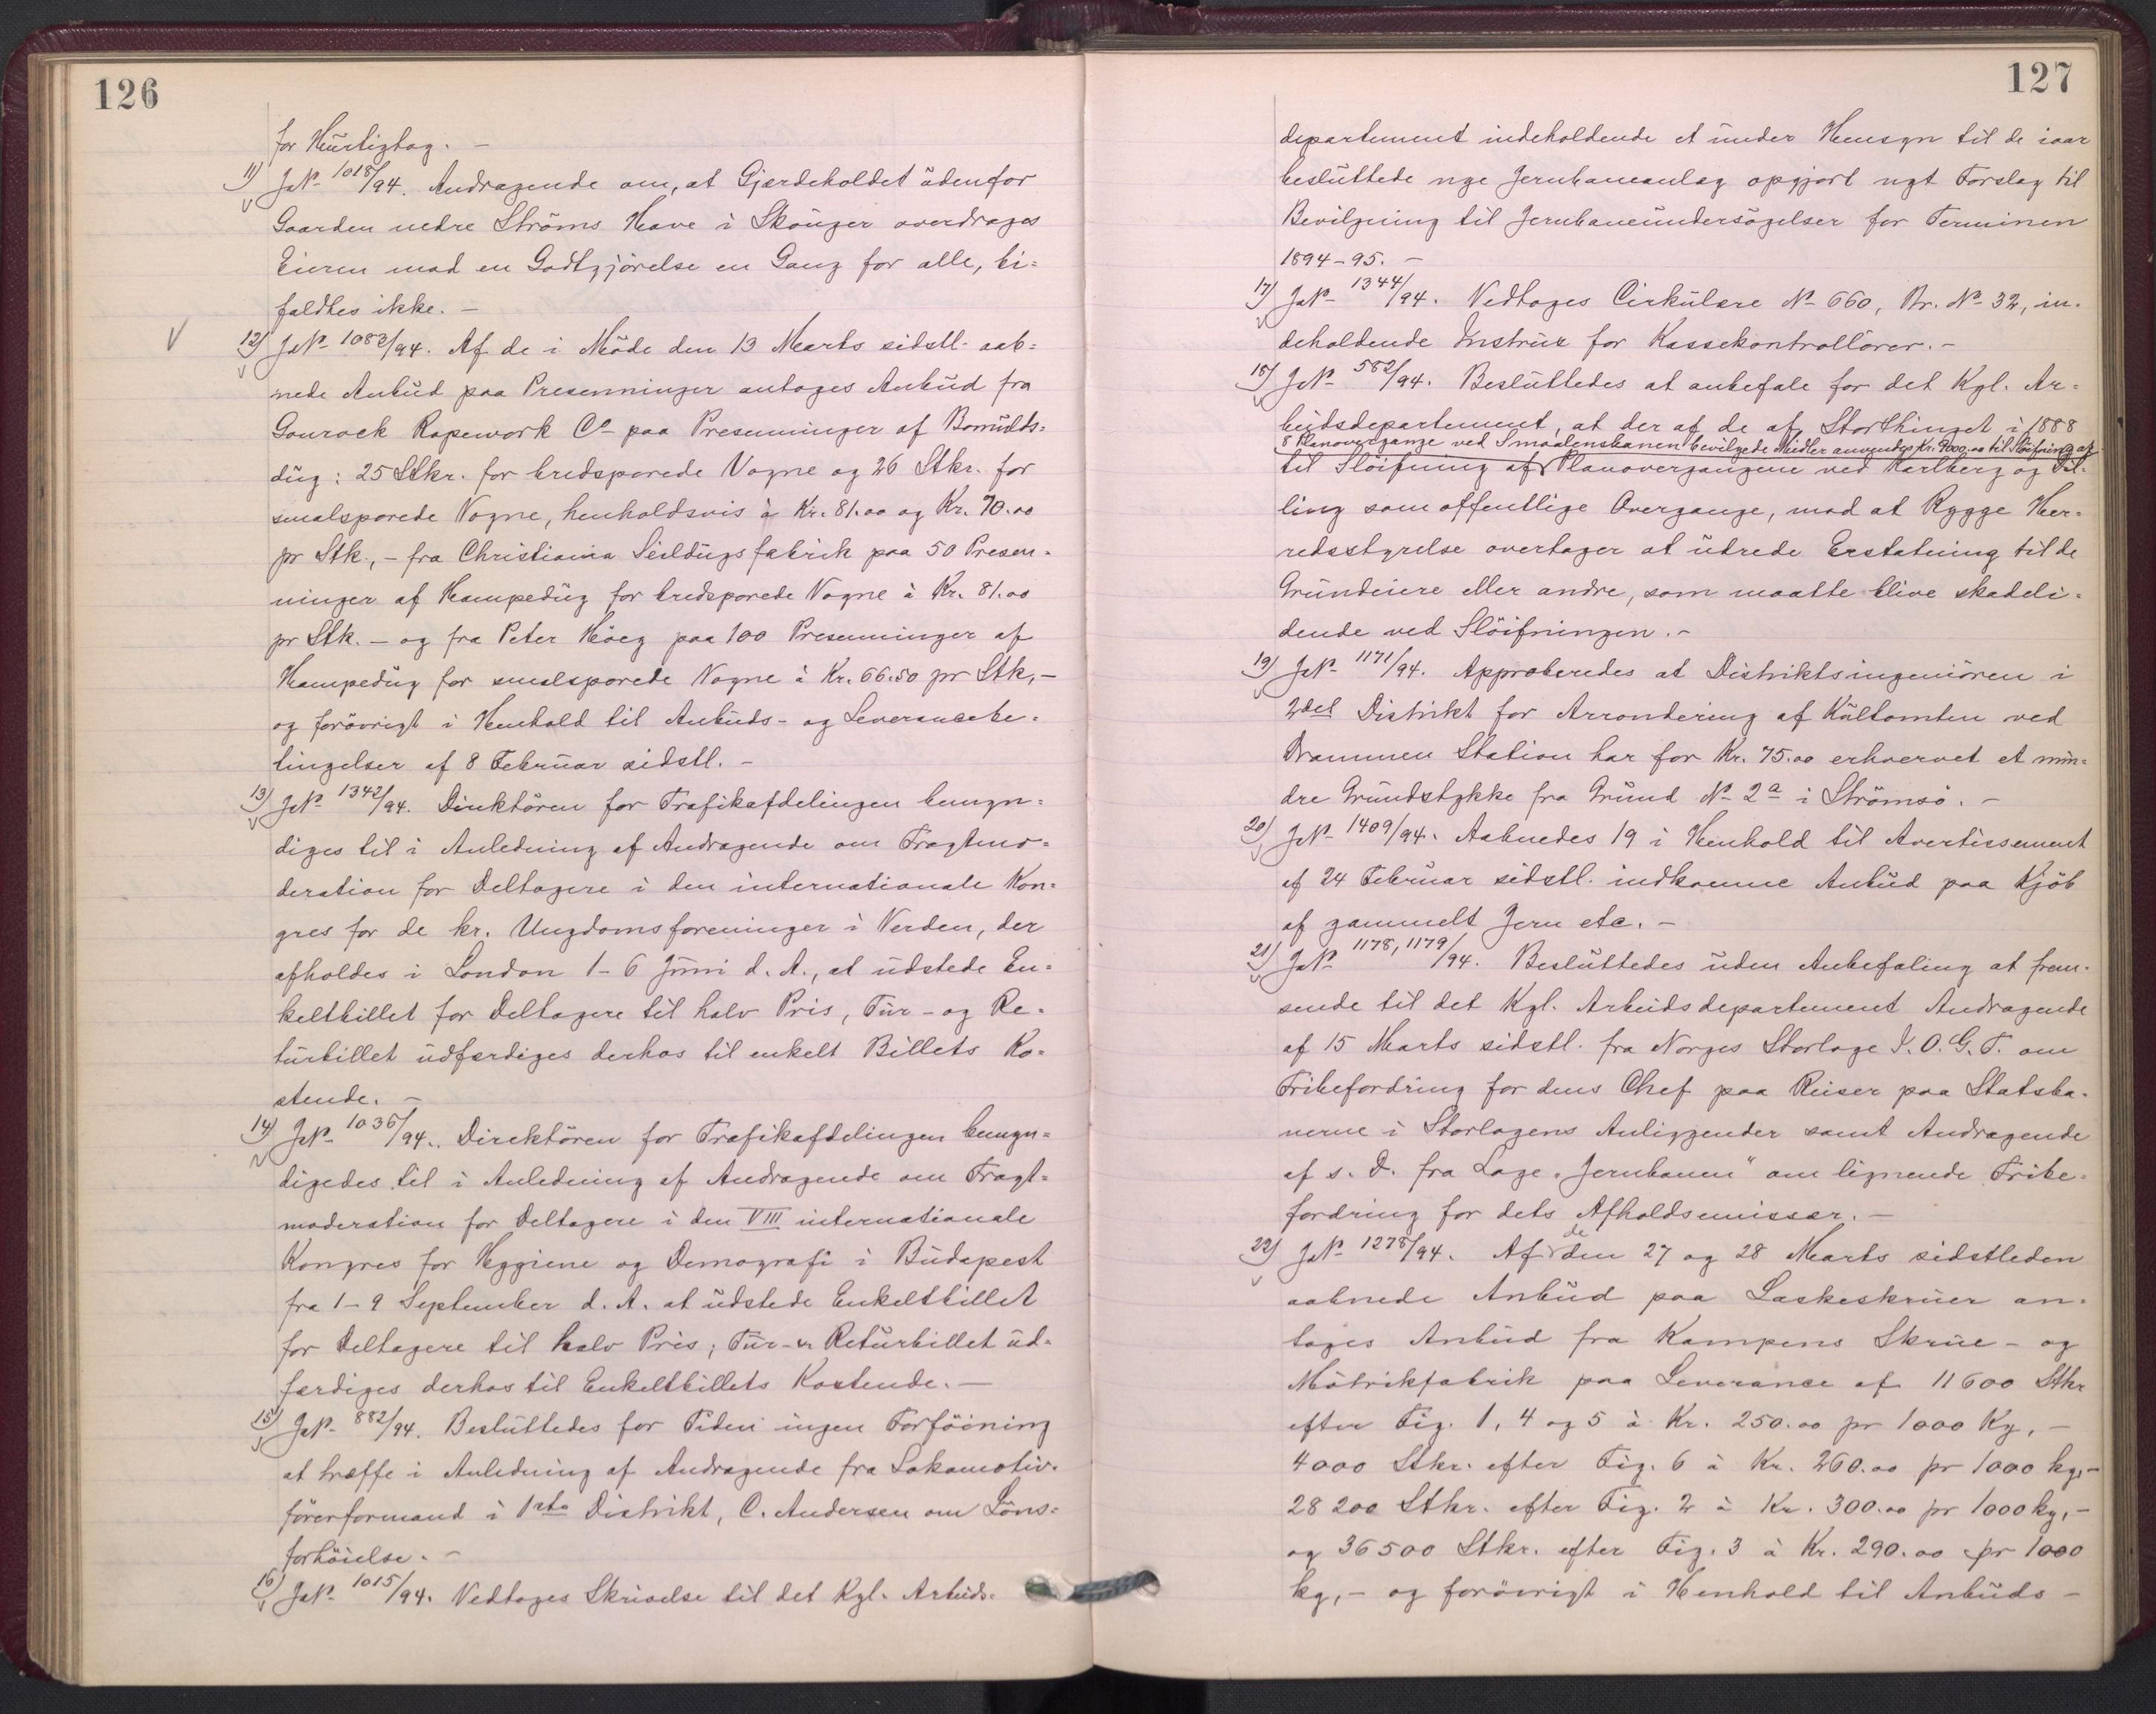 126
for Hurtigtog. -
11) JNo 1018/94. Andragende om, at Gjærdeholdet udenfor
Gaarden nedre Ströms Have i Skouger overdrages
Eieren mod en Godtgjörelse en Gang for alle, bi=
faldtes ikke. -
12) JNo 1083/94. Af de i Möde den 13 Marts sidstl. aab=
nede Anbud paa Presenninger antoges Anbud fra
Gourock Ropework Co paa Presenninger af Bomulds=
dug: 25 Stkr. for bredsporede Vogne og 26 Stkr. for
smalsporede Vogne, henholdsvis à Kr. 81.00 og Kr. 70.00
pr Stk., - fra Christiania Seildugsfabrik paa 50 Presen=
ninger af Hampedug for bredsporede Vogne à Kr. 81.00
pr Stk. - og fra Peter Höeg paa 100 Presenninger af
Hampedug for smalsporede Vogne à Kr. 66.50 pr Stk, -
og forövrigt i Henhold til Anbuds- og Leverancebe=
tingelser af 8 Februar sidstl. -
13) JNo 1342/94. Direktören for Trafikafdelingen bemyn=
diges til i Anledning af Andragende om Fragtmo=
deration for Deltagere i den internationale Kon=
gres for de kr. Ungdomsforeninger i Verden, der
afholdes i London 1-6 Juni d. A., at udstede En=
keltbillet for Deltagere til halv Pris, Tur- og Re=
turbillet udfærdiges derhos til enkelt Billets Ko=
stende. -
14) JNo 1036/94. Direktören for Trafikafdelingen bemyn=
digedes til i Anledning af Andragende om Fragt=
moderation for Deltagere i den VIII internationale
Kongres for Hygiene og Demografi i Budapest
fra 1-9 September d. A. at udstede Enkeltbillet
for Deltagere til halv Pris; Tur- & Returbillet ud=
færdiges derhos til Enkeltbillets Kostende. -
15) JNo 882/94. Besluttedes for Tiden ingen Forföining
at træffe i Anledning af Andragende fra Lokomotiv=
förerformand i 1ste Distrikt, C. Andersen om Löns=
forhöielse. -
16) JNo 1015/94. Vedtoges Skrivelse til det Kgl. Arbeids=
127
departement indeholdende et under Hensyn til de iaar
besluttede nye Jernbaneanlæg opgjort nyt Forslag til
Bevilgning til Jernbaneundersögelser for Terminen
1894-95. -
17) JNo 1344/94. Vedtoges Cirkulære No 660, Br. No 32, in=
deholdende Instrux for Kassekontrollörer. -
18) JNo 582/94. Besluttedes at anbefale for det Kgl. Ar=
beidsdepartement, at der af de af Storthinget i 1888
8 Planovergange ved Smaalensbanen bevilgede Midler anvendes Kr. 9000.00 til Slöifning af
til Slöifning af Planovergangene ved Karlberg og Dil=
ling som offentlige Overgange, mod at Rygge Her=
redsstyrelse overtager at udrede Erstatning til de
Grundeiere eller andre, som maatte blive skadeli=
dende ved Slöifningen. -
19) JNo 1171/94. Approberedes at Distriktsingeniören i
2det Distrikt for Arrondering af Kultomten ved
Drammen Station har for Kr. 75.00 erhvervet et min=
dre Grundstykke fra Grund No 2a i Strömsö. -
20) JNo 1409/94. Aabnedes 19 i Henhold til Avertissement
af 24 Februar sidstl. indkomne Anbud paa Kjöb
af gammelt Jern etc. -
21) JNo 1178, 1179/94. Besluttedes uden Anbefaling at frem=
sende til det Kgl. Arbeidsdepartement Andragende
af 15 Marts sidstl. fra Norges Storloge I. O. G. T. om
Fribefordring for dens Chef paa Reiser paa Statsba=
nerne i Storlogens Anliggender samt Andragende
af s. D. fra Loge "Jernbanen" om lignende Fribe=
fordring for dets Afholdsemissær. -
de
22) JNo 1278/94. Af den 27 og 28 Marts sidstleden
aabnede Anbud paa Laskeskruer an=
toges Anbud fra Kampens Skrue- og
Mötrikfabrik paa Leverance af 11600 Stkr
efter Fig. 1, 4 og 5 à Kr. 250.00 pr 1000 Kg, -
4000 Stkr. efter Fig. 6 à Kr. 260.00 pr 1000 kg, -
28200 Stkr. efter Fig. 2 à Kr. 300.00 pr 1000 kg, -
og 36500 Stkr. efter Fig. 3 à Kr. 290.00 pr 1000
kg, - og forövrigt i Henhold til Anbuds -